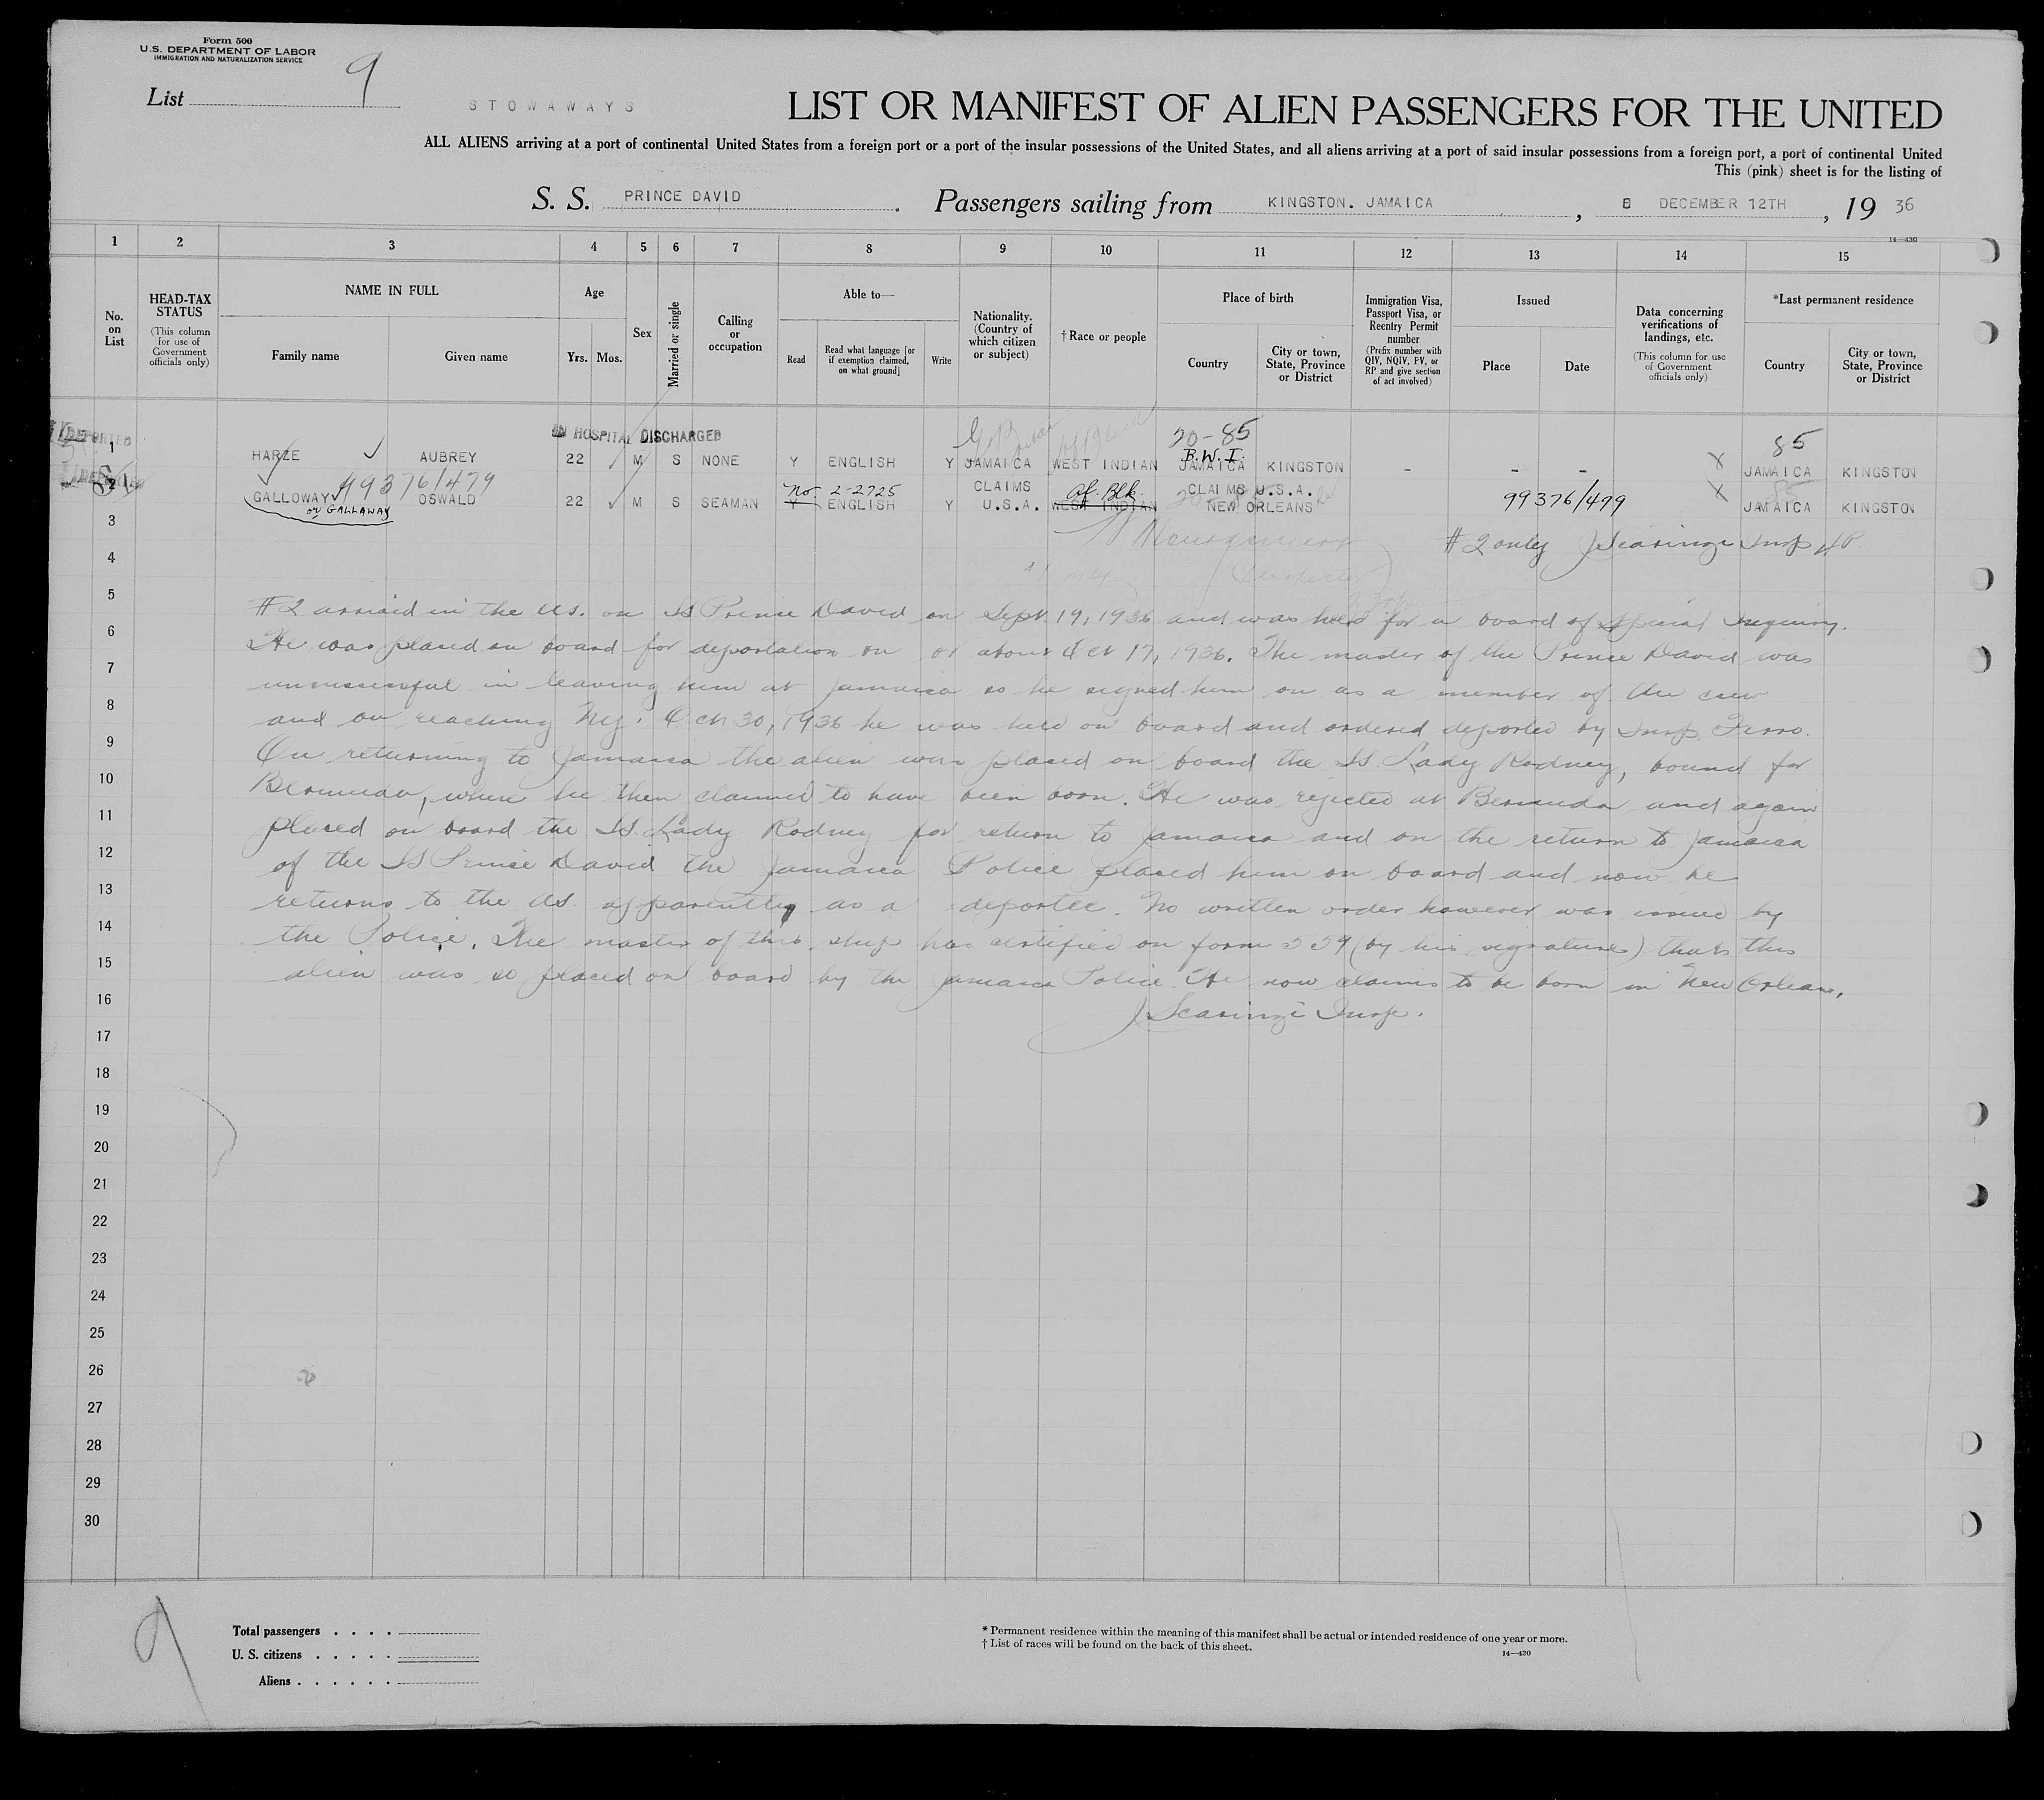 Form 500
U.S. DEPARTMENT OF LABOR
IMMIGRATION AND NATURALIZATION SERVICE
List 9
STOWAWAYS
LIST OR MANIFEST OF ALIEN PASSENGERS FOR THE UNITED
ALL ALIENS arriving at a port of continental United States from a foreign port or a port of the insular possessions of the United States, and all aliens arriving at a port of said insular possessions from a foreign port, a port of continental United
This (pink) sheet is for the listing of
S. S. PRINCE DAVID. Passengers sailing from KINGSTON. JAMAICA, DECEMBER 12TH, 19 36
14—430
1 2 3 4 5 6 7 8 9 10 11 12 13 14 15
No. on List
HEAD-TAX STATUS (This column for use of Government officials only)
NAME IN FULL
Family name Given name
Age
Yrs. Mos.
Sex
Married or single
Calling or occupation
Able to—
Read Read what language [or if exemption claimed, on what ground] Write
Nationality. (Country of which citizen or subject)
† Race or people
Place of birth
Country City or town, State, Province or District
Immigration Visa, Passport Visa, or Reentry Permit number (Prefix number with QIV, NQIV, PV, or RP and give section of act involved)
Issued
Place Date
Data concerning verifications of landings, etc. (This column for use of Government officials only)
*Last permanent residence
Country City or town, State, Province or District
IN HOSPITAL DISCHARGED
20-85 85
B.W.I.
1 HARZE AUBREY 22 M S NONE Y ENGLISH Y JAMAICA WEST INDIAN JAMAICA KINGSTON - - - JAMAICA KINGSTON
99376/479 no. 2-2725 CLAIMS Af. Blk. CLAIMS U.S.A.
2 GALLOWAY OSWALD 22 M S SEAMAN Y ENGLISH Y U.S.A. WEST INDIAN NEW ORLEANS 99376/499 JAMAICA KINGSTON
or GALLAWAY
3
#2 only J Scaringi Insp
4
5 #2 arrived in the US. on SS Prince David on Sept 19, 1936 and was held for a board of special Inquiry.
6 He was placed on board for deportation on or about Oct 17, 1936. The master of the Prince David was
7 unsuccessful in leaving him at Jamaica so he signed him on as a member of the crew
8 and on reaching NY. Oct 30, 1936 he was held on board and ordered deported by Insp. Ferro.
9 On returning to Jamaica the alien was placed on board the SS. Lady Rodney, bound for
10 Bermuda, where he then claimed to have been born. He was rejected at Bermuda and again
11 placed on board the SS. Lady Rodney for return to Jamaica and on the return to Jamaica
12 of the SS Prince David the Jamaica Police placed him on board and now he
13 returns to the US. apparently as a deportee. No written order however was issued by
14 the Police. The master of this ship has certified on form 559 (by his signature) that this
15 alien was so placed on board by the Jamaica Police. He now claims to be born in New Orleans.
16 J Scaringi Insp.
17
18
19
20
21
22
23
24
25
26
27
28
29
30
9
Total passengers . . . .
U. S. citizens . . . . .
Aliens . . . . . .
* Permanent residence within the meaning of this manifest shall be actual or intended residence of one year or more.
† List of races will be found on the back of this sheet.
14—430